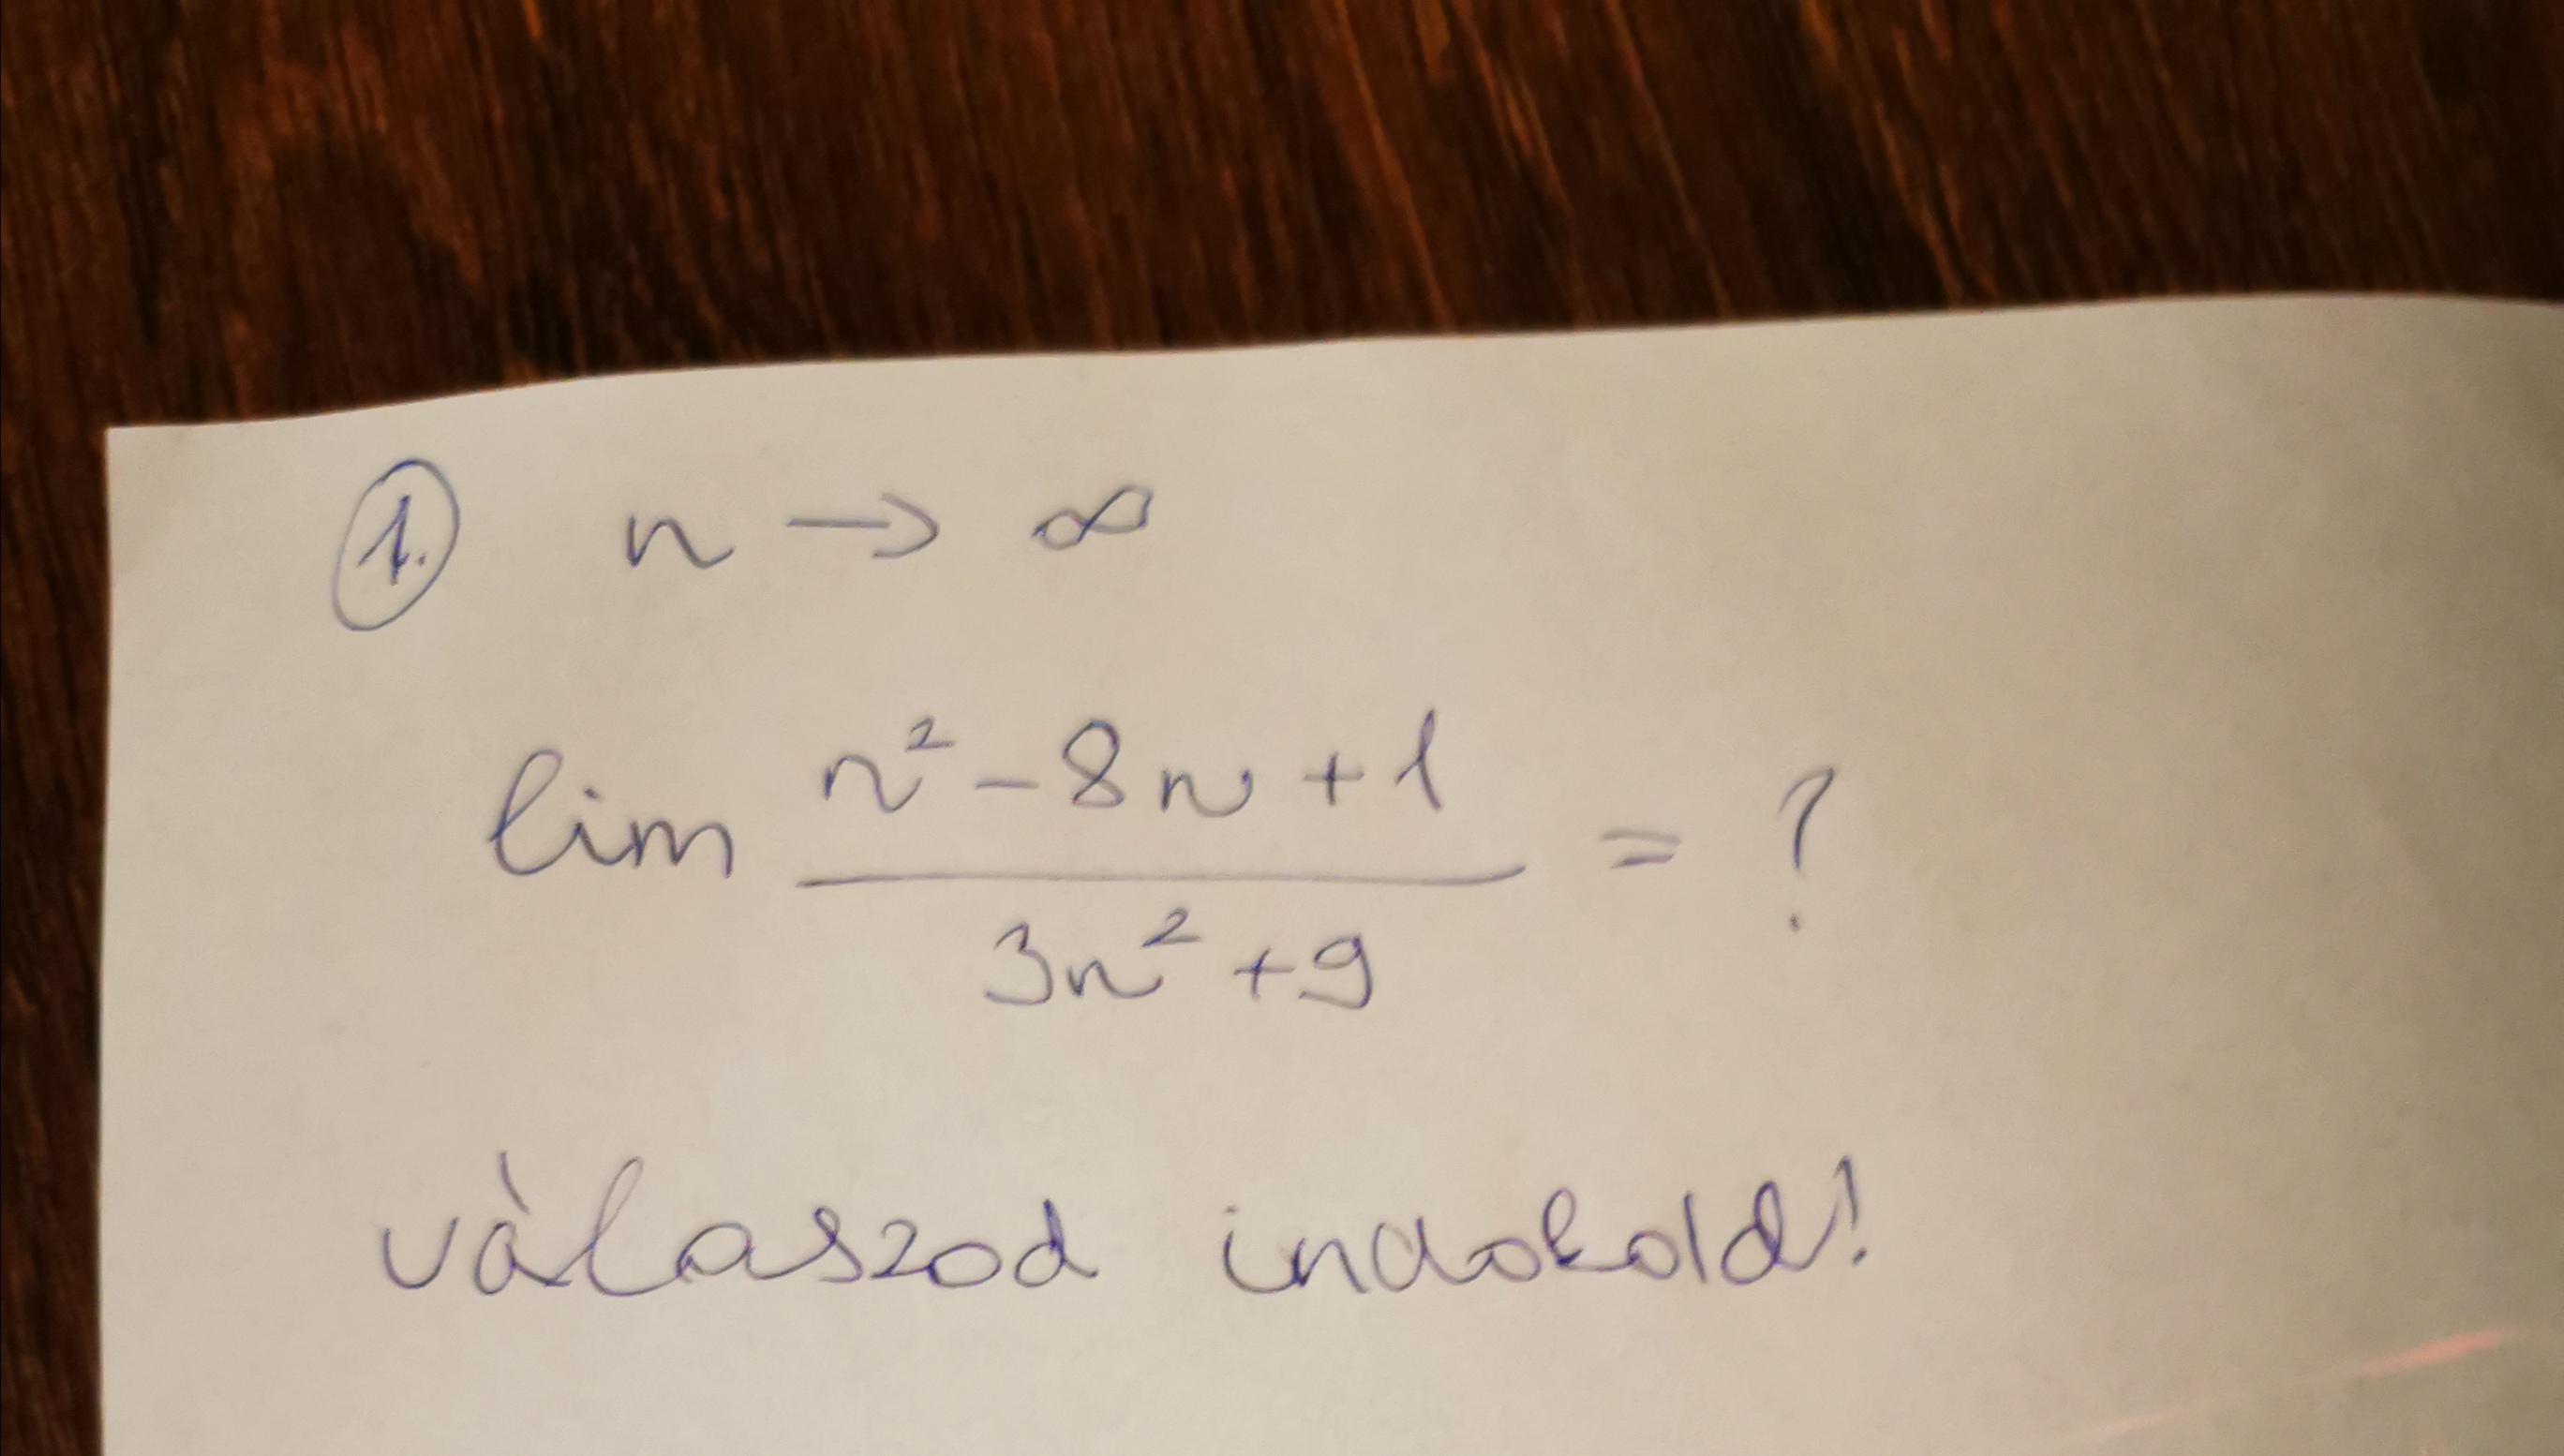 1. n → ∞
lim (n² - 8n + 1) / (3n² + 9) = ?
vàlaszod indokold!